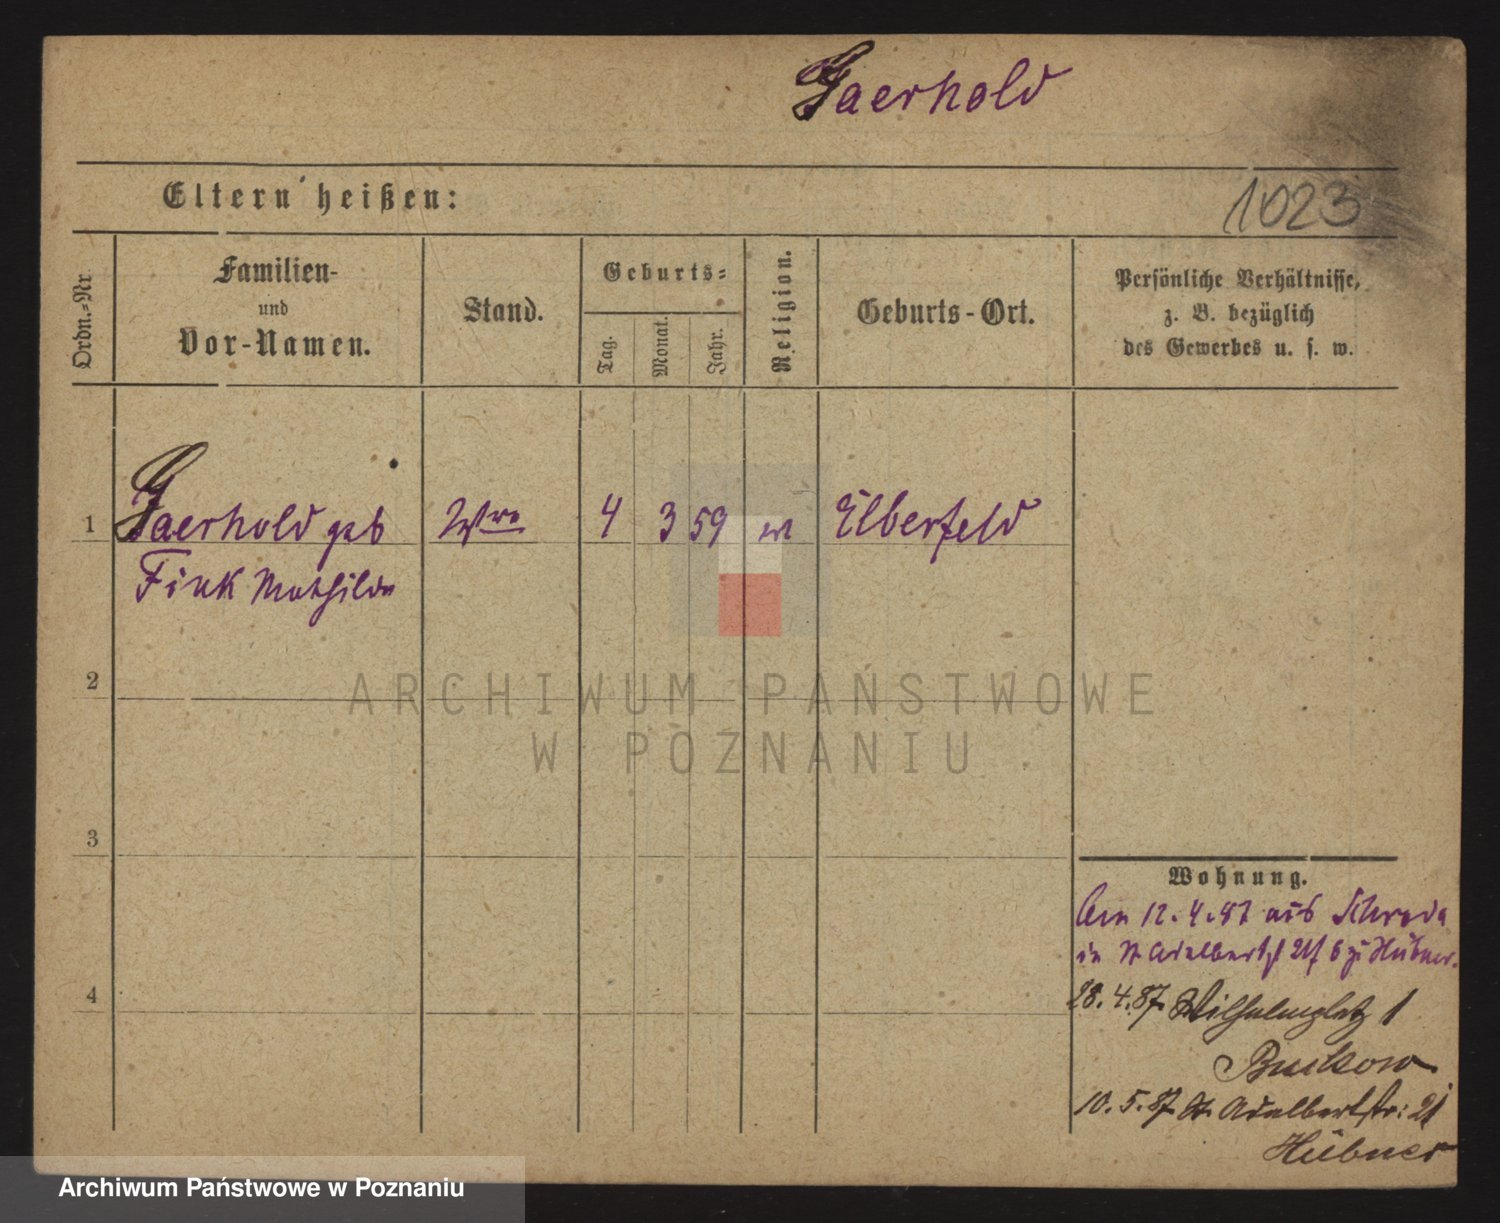 Gaerhold
Eltern heißen:
1023
Ordn.-Nr
Familien-
und
Vor-Namen.
Stand.
Geburts-
Tag.
Monat.
Jahr.
Religion.
Geburts-Ort.
Persönliche Verhältnisse,
z. B. bezüglich
des Gewerbes u. s. w.
1 Gaerhold geb Wwe 4 3 59 ev Elberfeld
Fink Mathilde
2
ARCHIWUM PAŃSTWOWE
W POZNANIU
3
Wohnung.
Am 12.4.87 aus Schroda
in St Adalbertst 21 b Hübner.
4
28.4.87 Wilhelmplatz 1
Buckow
10.5.87 St. Adalbertstr: 21
Hübner
Archiwum Państwowe w Poznaniu